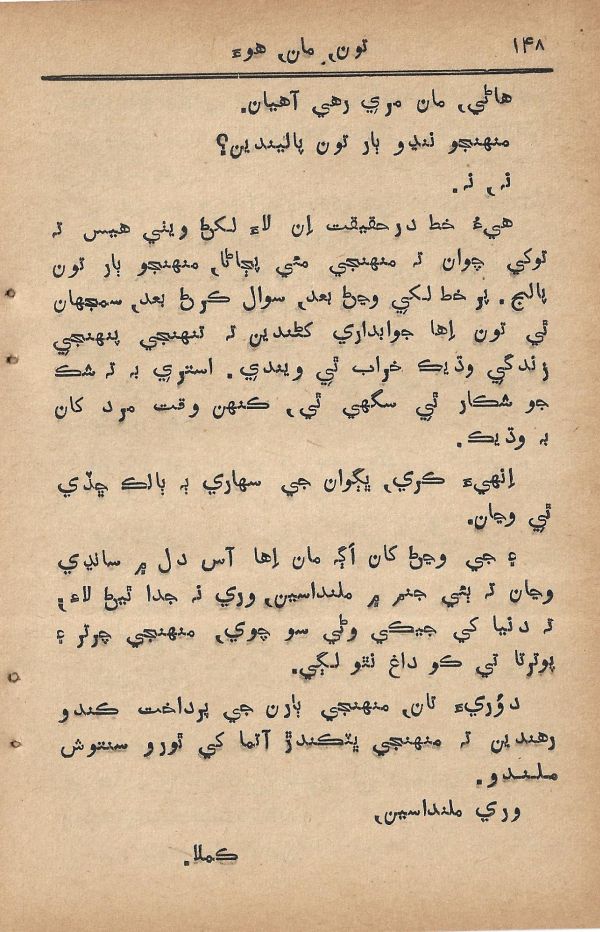 ۱۴۸
تون, مان, هوءَ
هاڻي, مان مري رهي آهيان.
منهنجو ننڍو ٻار تون پاليندين؟
نہ, نہ.
هيءُ خط درحقيقت اِن لاءِ لکڻ ويٺي هيس تہ
توکي چوان تہ منهنجي مئي پڄاڻا, منهنجو ٻار تون
پالج. پر خط لکي وڃڻ بعد, سوال ڪرڻ بعد, سمجهان
ٿي تون اِها جوابداري کڻندين تہ تنهنجي پنهنجي
زندگي وڌيڪ خراب ٿي ويندي. استري بہ تہ شڪ
جو شڪار ٿي سگهي ٿي, ڪنهن وقت مرد کان
بہ وڌيڪ.
اِنهيءَ ڪري, ڀڳوان جي سهاري ٻہ ٻالڪ ڇڏي
ٿي وڃان.
۽ جي وڃڻ کان اَڳہ مان اِها آس دل ۾ سانڍي
وڃان تہ ٻئي جنم ۾ ملنداسين, وري نہ جدا ٿيڻ لاءِ,
تہ دنيا کي جيڪي وڻي سو چوي, منهنجي چرتر ۽
پوترتا تي ڪو داغ نٿو لڳي.
دوُريءَ تان, منهنجي ٻارن جي پرداخت ڪندو
رهندين تہ منهنجي ڀٽڪندڙ آتما کي ٿورو سنتوش
ملندو.
وري ملنداسين,
ڪملا.